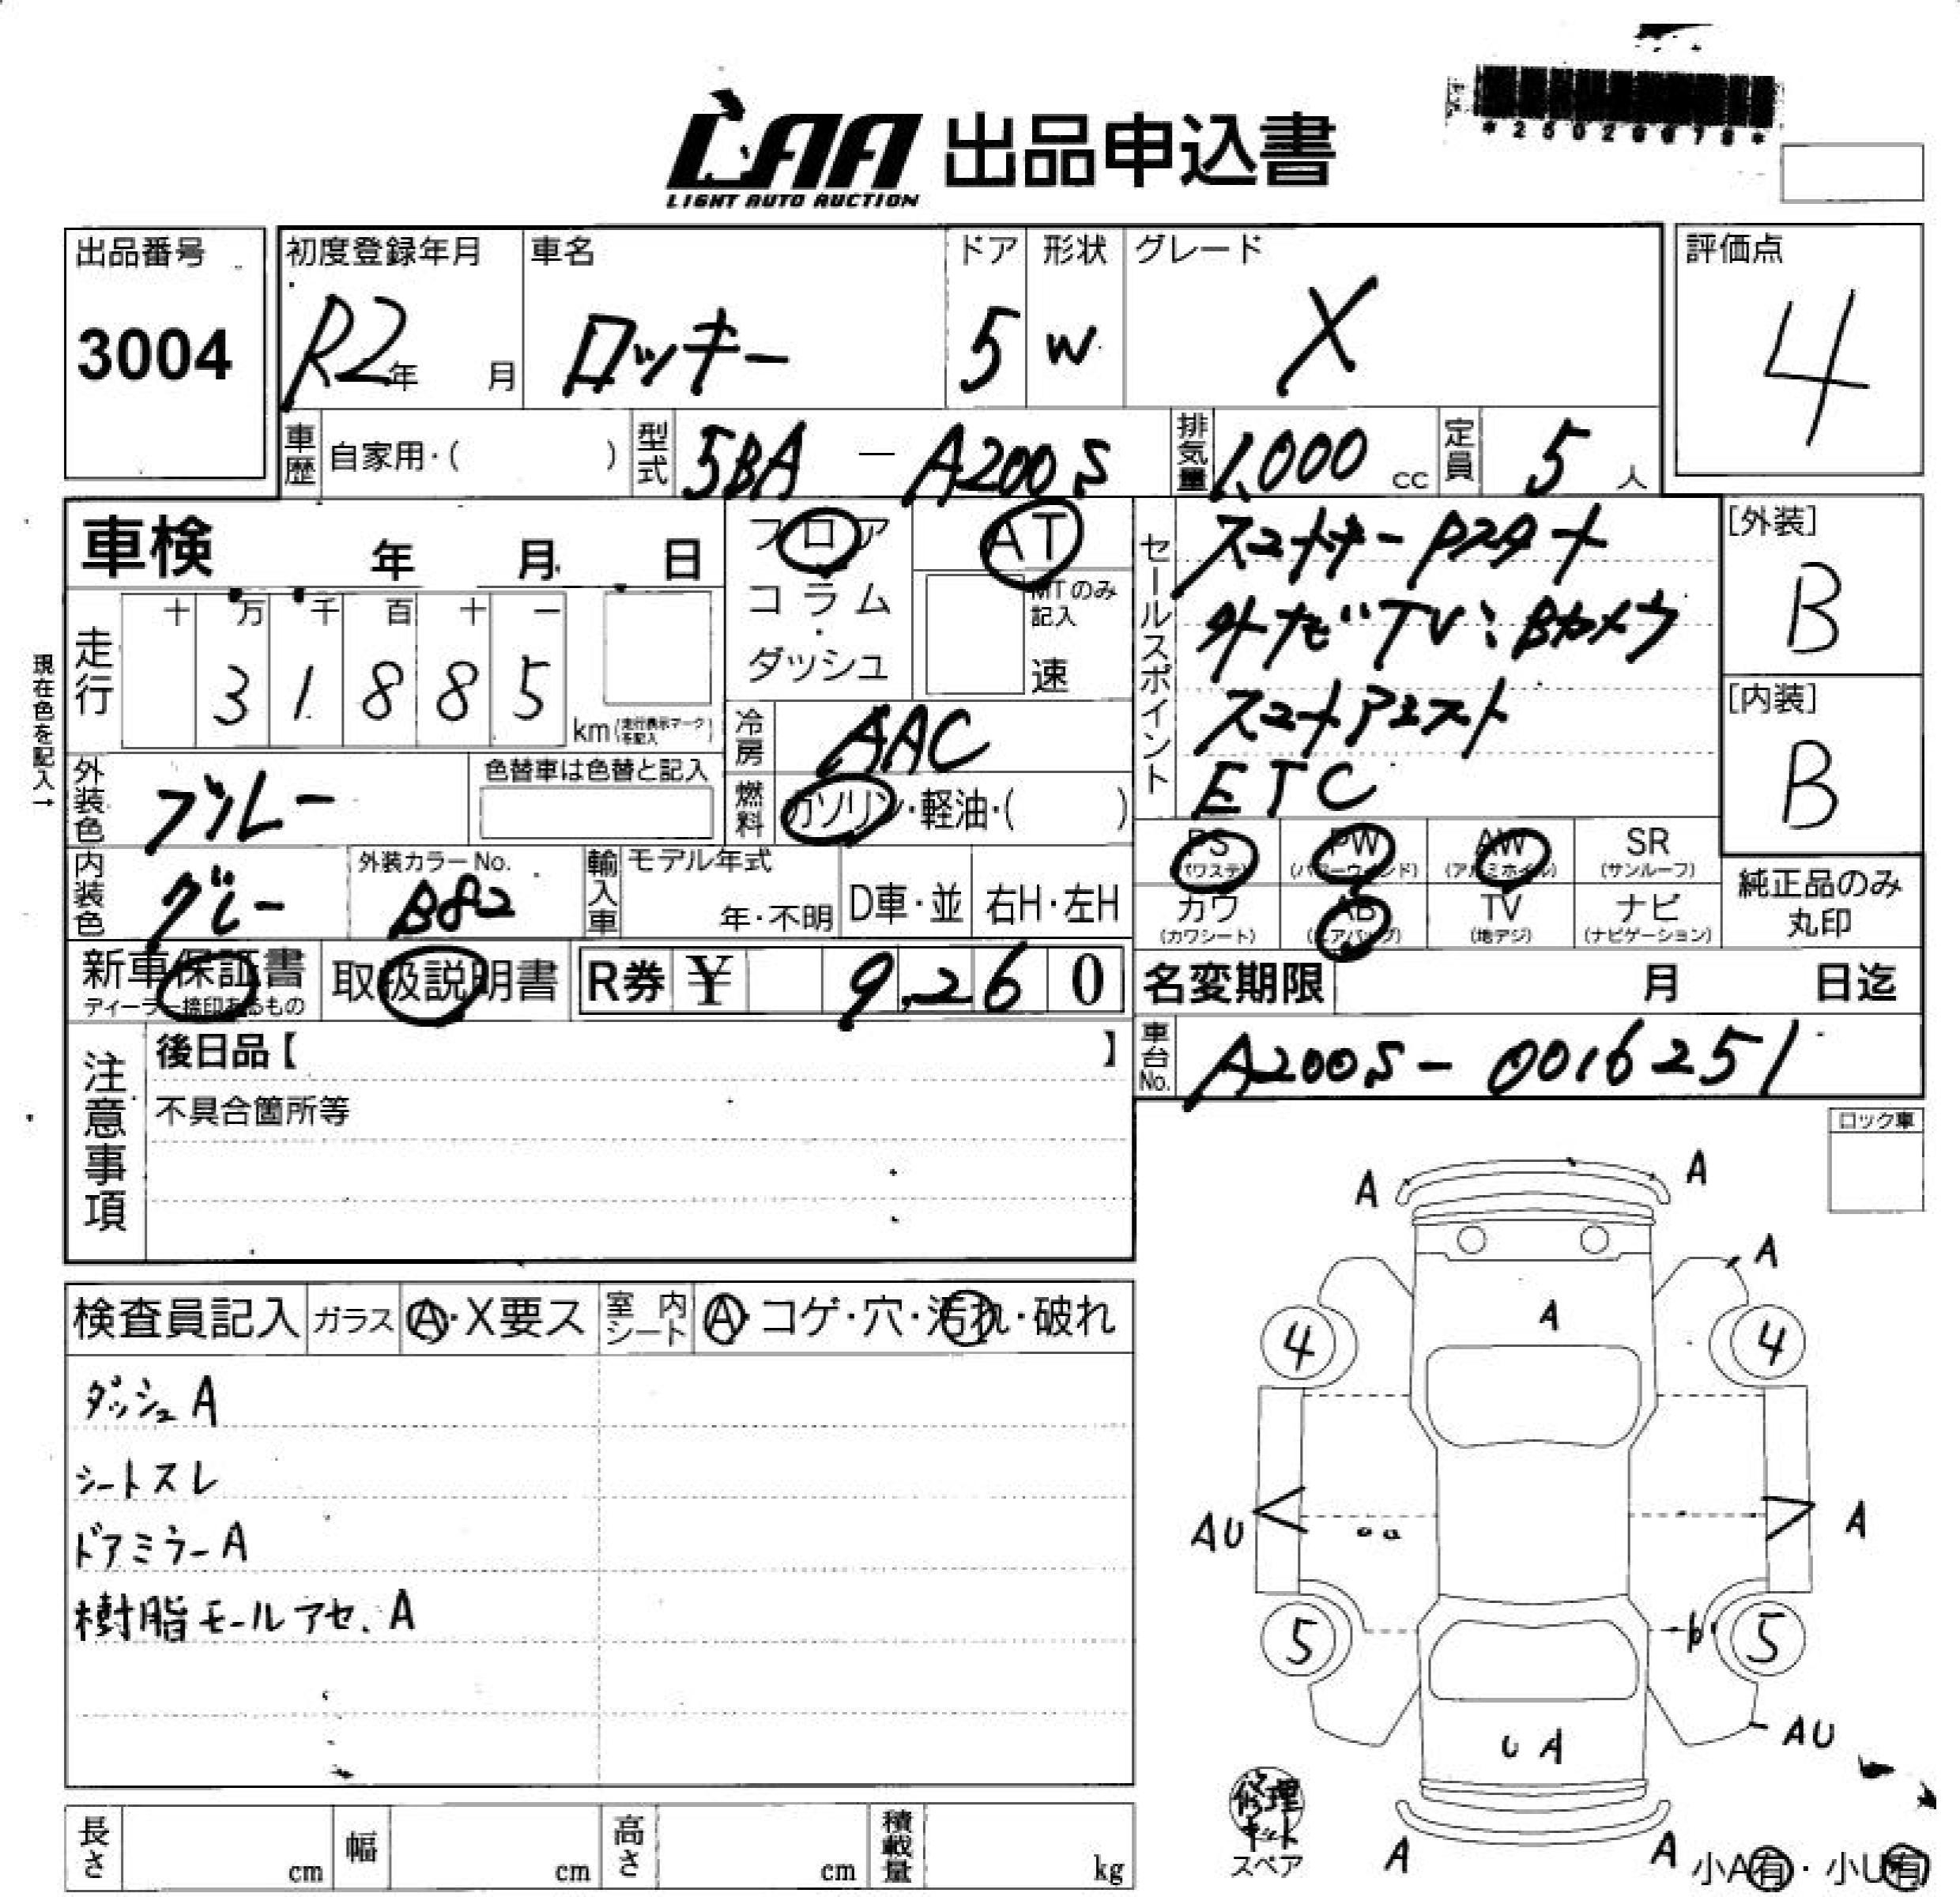 LAA 出品申込書
LIGHT AUTO AUCTION
出品番号
3004
初度登録年月
R2年 月
車名
ロッキー
ドア
5
形状
W
グレード
X
評価点
4
車歴 自家用・( )
型式 5BA － A200S
排気量 1,000 cc
定員 5 人
車検 年 月 日
現在色を記入→
走行 十 万 千 百 十 一
3 1 8 8 5 km
(走行表示マークを記入)
フロア
コラム
・
ダッシュ
AT
MTのみ記入
速
冷房 AAC
燃料 ガソリン・軽油・( )
セールスポイント
スマートキー Pスタート
外ナビ TV: Bカメラ
スマートアシスト
ETC
[外装]
B
[内装]
B
外装色 ブルー
色替車は色替と記入
内装色 グレー
外装カラーNo.
B82
輸入車 モデル年式
年・不明
D車・並
右H・左H
PS (パワステ)
PW (パワーウインド)
AW (アルミホイル)
SR (サンルーフ)
カワ (カワシート)
AB (エアバック)
TV (地デジ)
ナビ (ナビゲーション)
純正品のみ
丸印
新車保証書
ディーラー捺印あるもの
取扱説明書
R券 ￥ 9,260
名変期限 月 日迄
車台No. A200S - 0016251
注意事項
後日品【 】
不具合箇所等
ロック車
検査員記入
ガラス Ⓐ・X要ス
室内シート Ⓐ・コゲ・穴・汚れ・破れ
ダッシュ A
シートスレ
ドアミラー A
樹脂モールアセ. A
A A
A
A
4 4
AU A
5 5
AU
U A
修理
キット
スペア
A A
小A有・小U有
長さ cm
幅 cm
高さ cm
積載量 kg